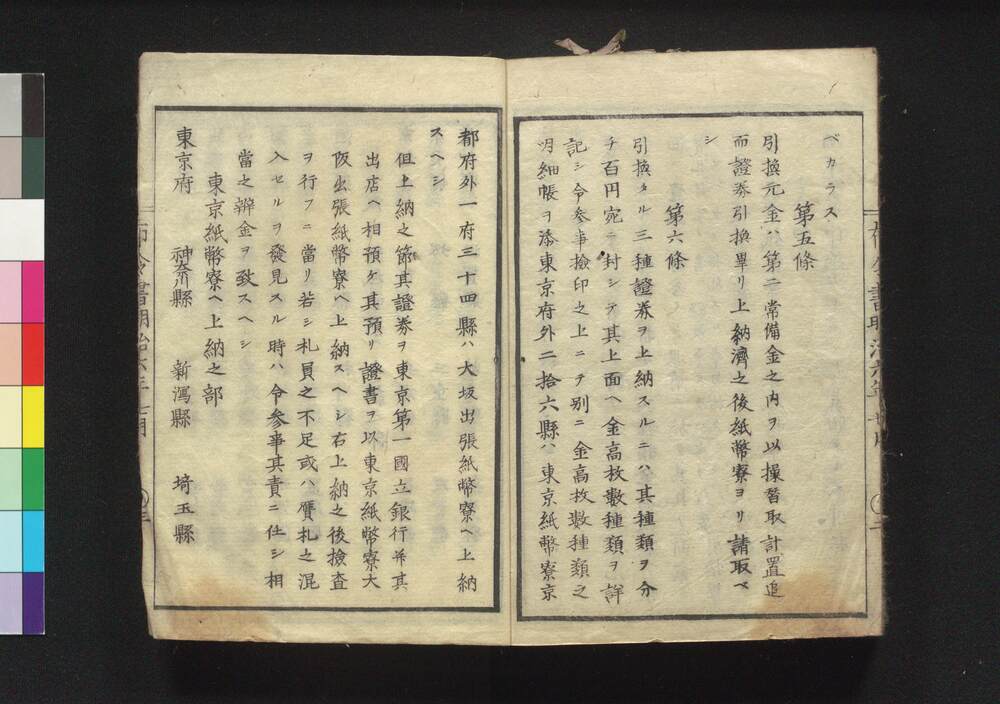 ベカラス
第五條
引換元金ハ第二常備金之内ヲ以操替取計置追
而證券引換畢リ上納濟之後紙幣寮ヨリ請取ベ
シ
第六條
引換タル三種證券ヲ上納スルニハ其種類ヲ分
チ百円宛ニ封シテ其上面ヘ金高枚数種類ヲ詳
記シ令参事撿印之上ニテ別ニ金高枚数種類之
明細帳ヲ添東京府外二拾六縣ハ東京紙幣寮京
都府外一府三十四縣ハ大坂出張紙幣寮ヘ上納
スヘシ
但上納之節其證券ヲ東京第一國立銀行并其
出店ヘ相預ケ其預リ證書ヲ以東京紙幣寮大
阪出張紙幣寮ヘ上納スヘシ右上納之後撿査
ヲ行フニ當リ若シ札員之不足或ハ贋札之混
入セルヲ發見スル時ハ令参事其責ニ任シ相
當之辨金ヲ致スヘシ
東京紙幣寮ヘ上納之部
東京府 神奈川縣 新潟縣 埼玉縣
布令書明治六年七月 三